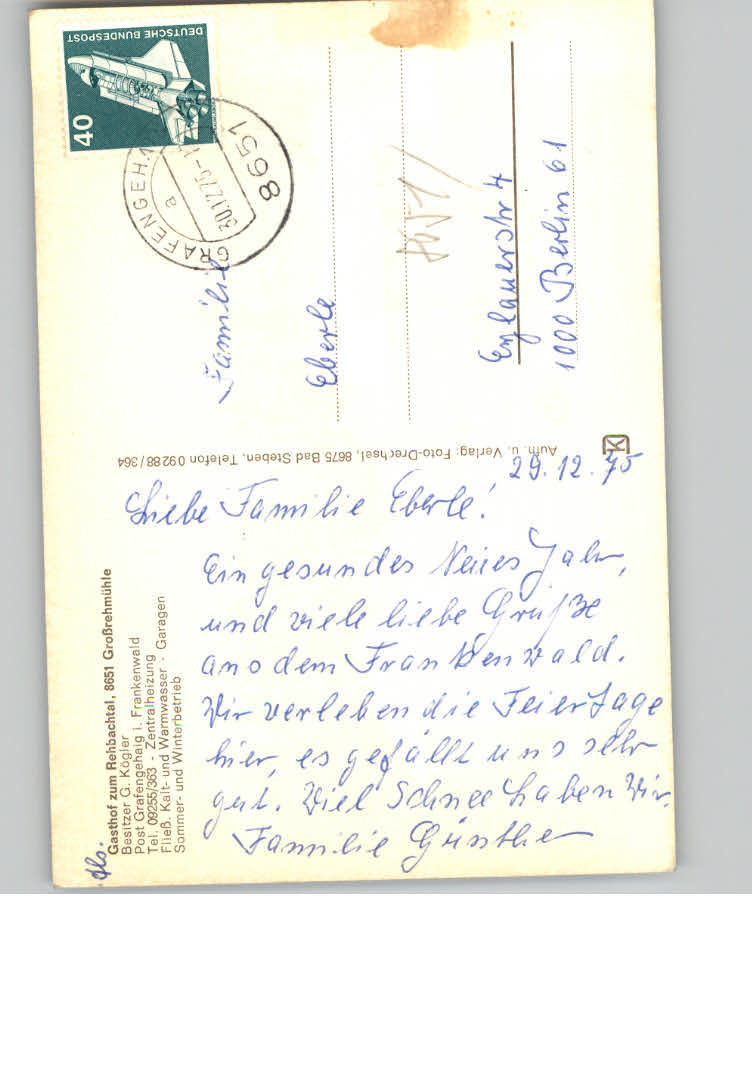 DEUTSCHE BUNDESPOST
40
GRAFENGEH
a
30.12.75
8651
Familie
Eberle
Eylauerstr 4
1000 Berlin 61
Aufn. u. Verlag: Foto-Drechsel, 8675 Bad Steben, Telefon 09288/364
K
Abs.
Gasthof zum Rehbachtal, 8651 Großrehmühle
Besitzer G. Kögler
Post Grafengehaig i. Frankenwald
Tel. 09255/363 - Zentralheizung
Fließ. Kalt- und Warmwasser - Garagen
Sommer- und Winterbetrieb
29.12.75
Liebe Familie Eberle!
Ein gesundes Neues Jahr,
und viele liebe Grüße
aus dem Frankenwald.
Wir verleben die Feiertage
hier, es gefällt uns sehr
gut. Viel Schnee haben Wir.
Familie Günther